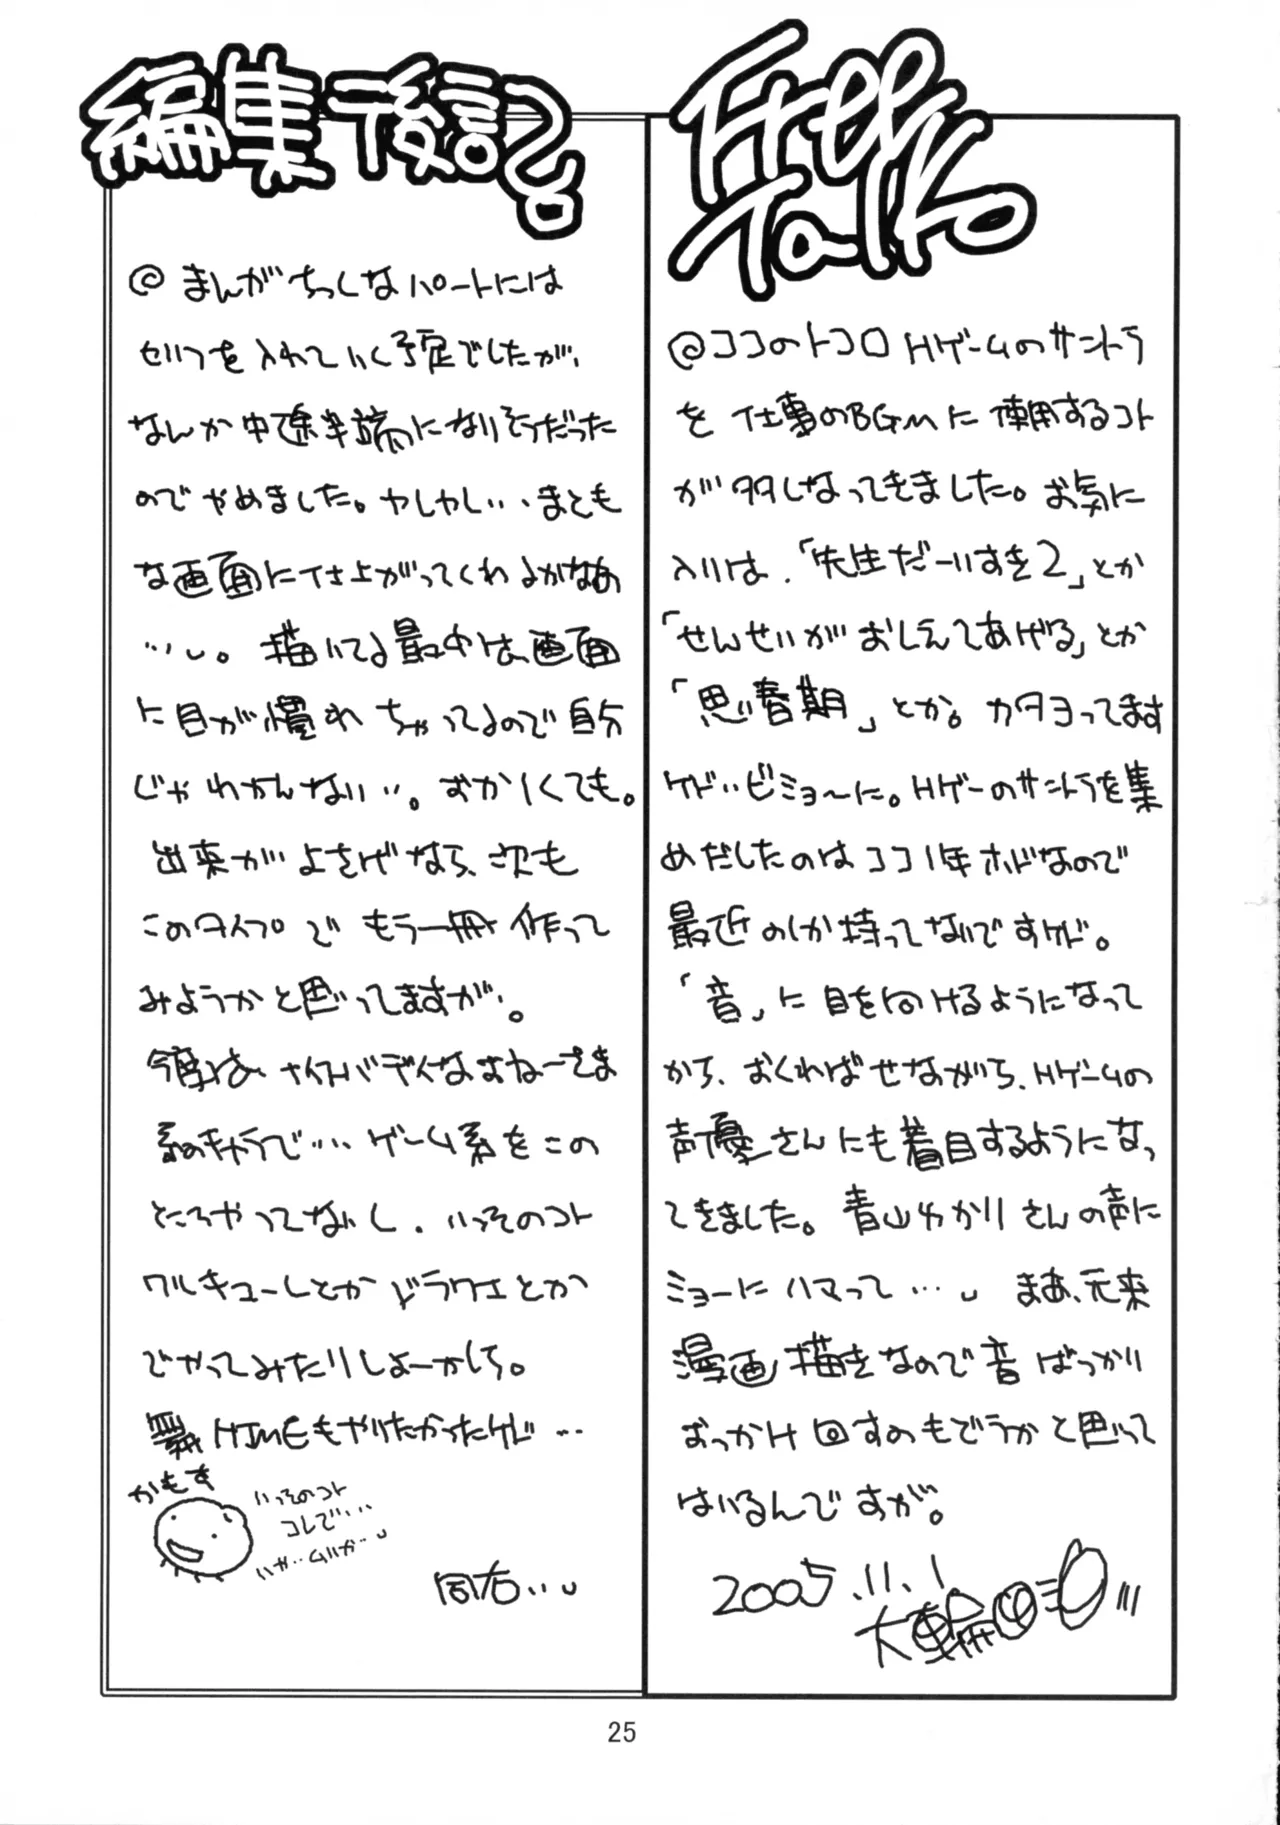 Free
Talk
@ココのトコロ Hゲームのサントラ
を仕事のBGMに使用するコト
が多くなってきました。お気に
入りは、「先生だーいすき2」とか
「せんせいがおしえてあげる」とか
「思春期」とか。カタヨってます
ケド‥ビミョ〜に。Hゲーのサントラを集
めだしたのはココ1年ホドなので
最近のしか持ってないですケド。
「音」に目を向けるようになって
から、おくればせながら、Hゲームの
声優さんにも着目するようになっ
てきました。青山ゆかりさんの声に
ミョーにハマって…。まあ、元来
漫画描きなので音ばっかり
おっかけ回すのもどうかと思って
はいるんですが。
2005.11.1
大輪
編集後記
@まんがちっくなパートには
セリフを入れていく予定でしたが、
なんか中途半端になりそうだった
のでやめました。ヤレヤレ‥、まとも
な画面に仕上がってくれるかなあ
…。描いてる最中は、画面
に目が慣れちゃってるので自分
じゃわかんない‥。おかしくても。
出来がよさげなら、次も
このタイプでもう一冊作って
みようかと思ってますが。
今度は、ナイスバディなおねーさま
系のキャラで…、ゲーム系をこの
ところやってないし、いっそのコト
ワルキューレとかドラクエとか
でやってみたりしよーかしら。
舞HIMEもやりたかったケド…
かもす
いっそのコト
コレで…
いや‥ムリか‥
同右‥
25